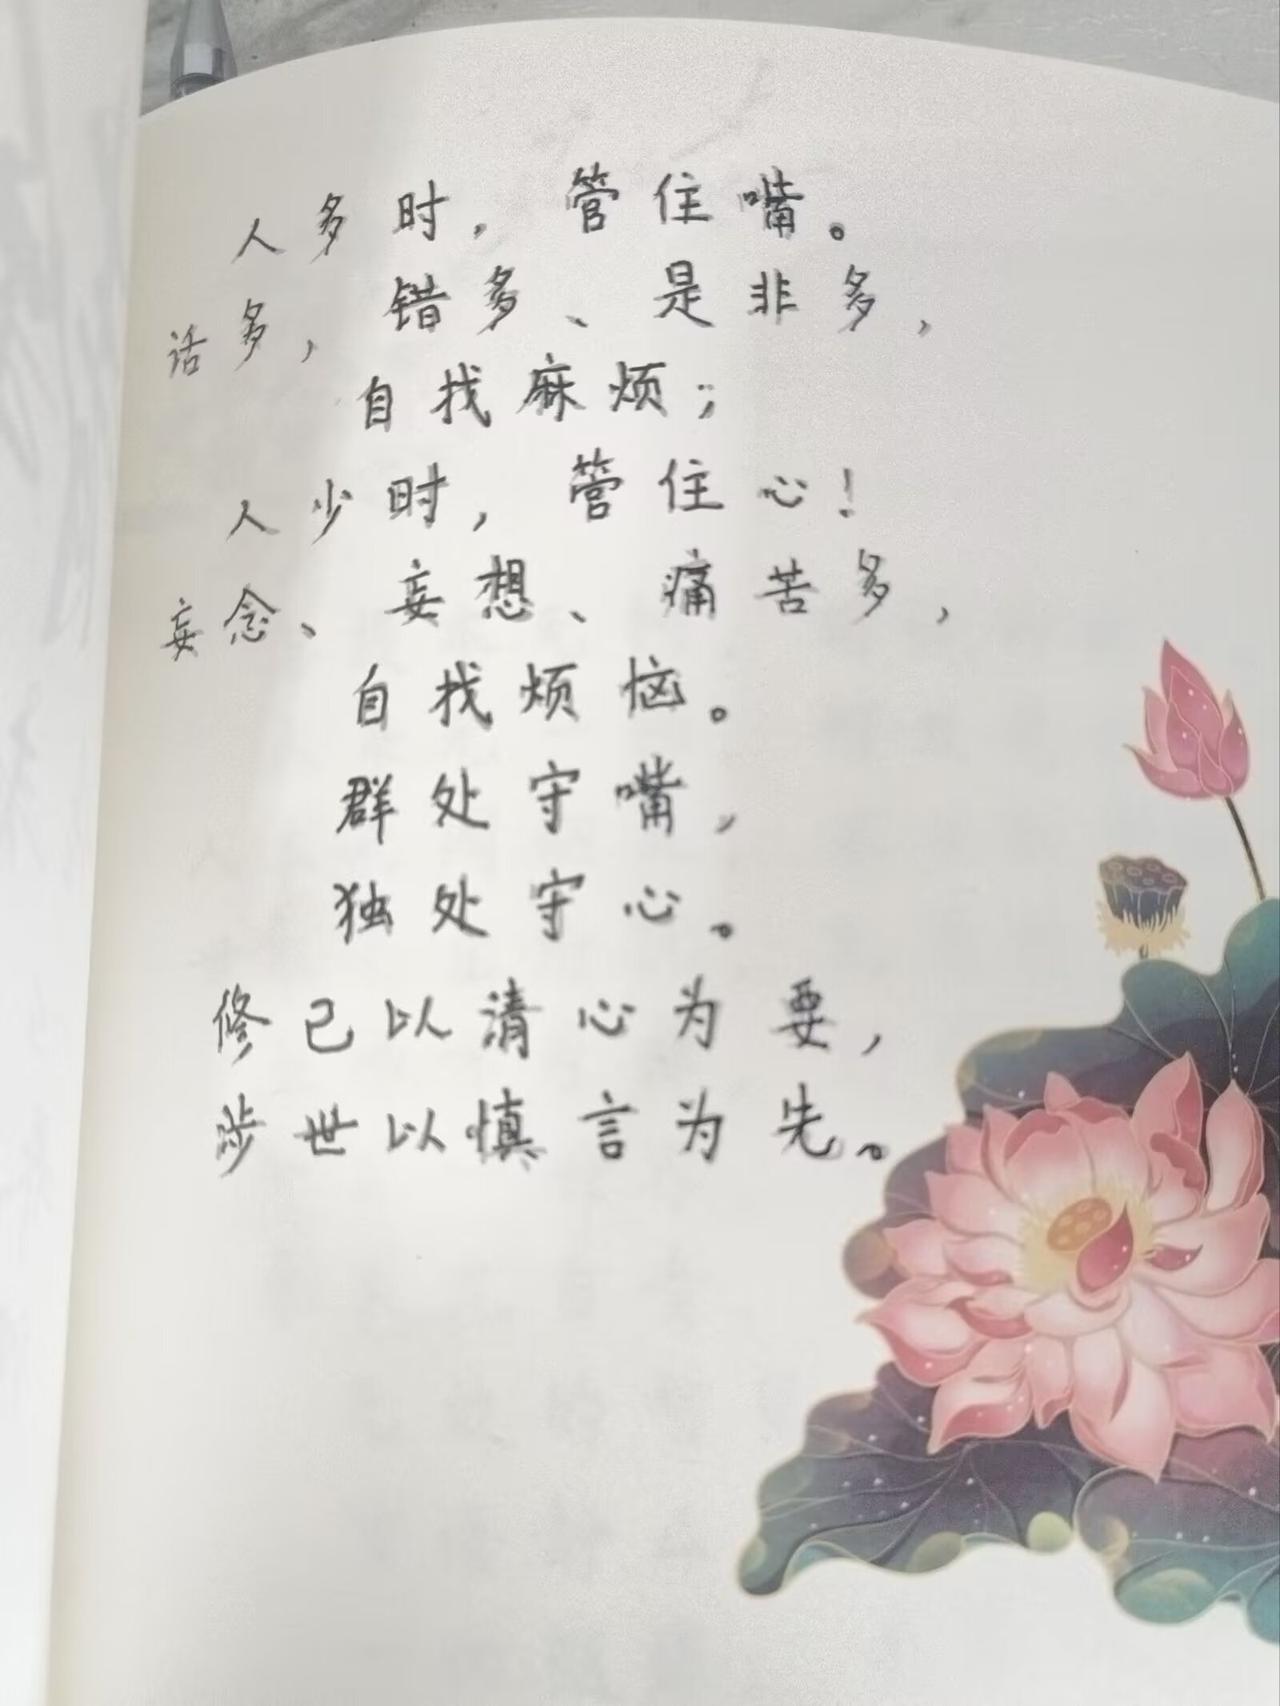 人多时，管住嘴。
话多，错多、是非多，
自找麻烦；
人少时，管住心！
妄念、妄想、痛苦多，
自找烦恼。
群处守嘴，
独处守心。
修己以清心为要，
涉世以慎言为先。